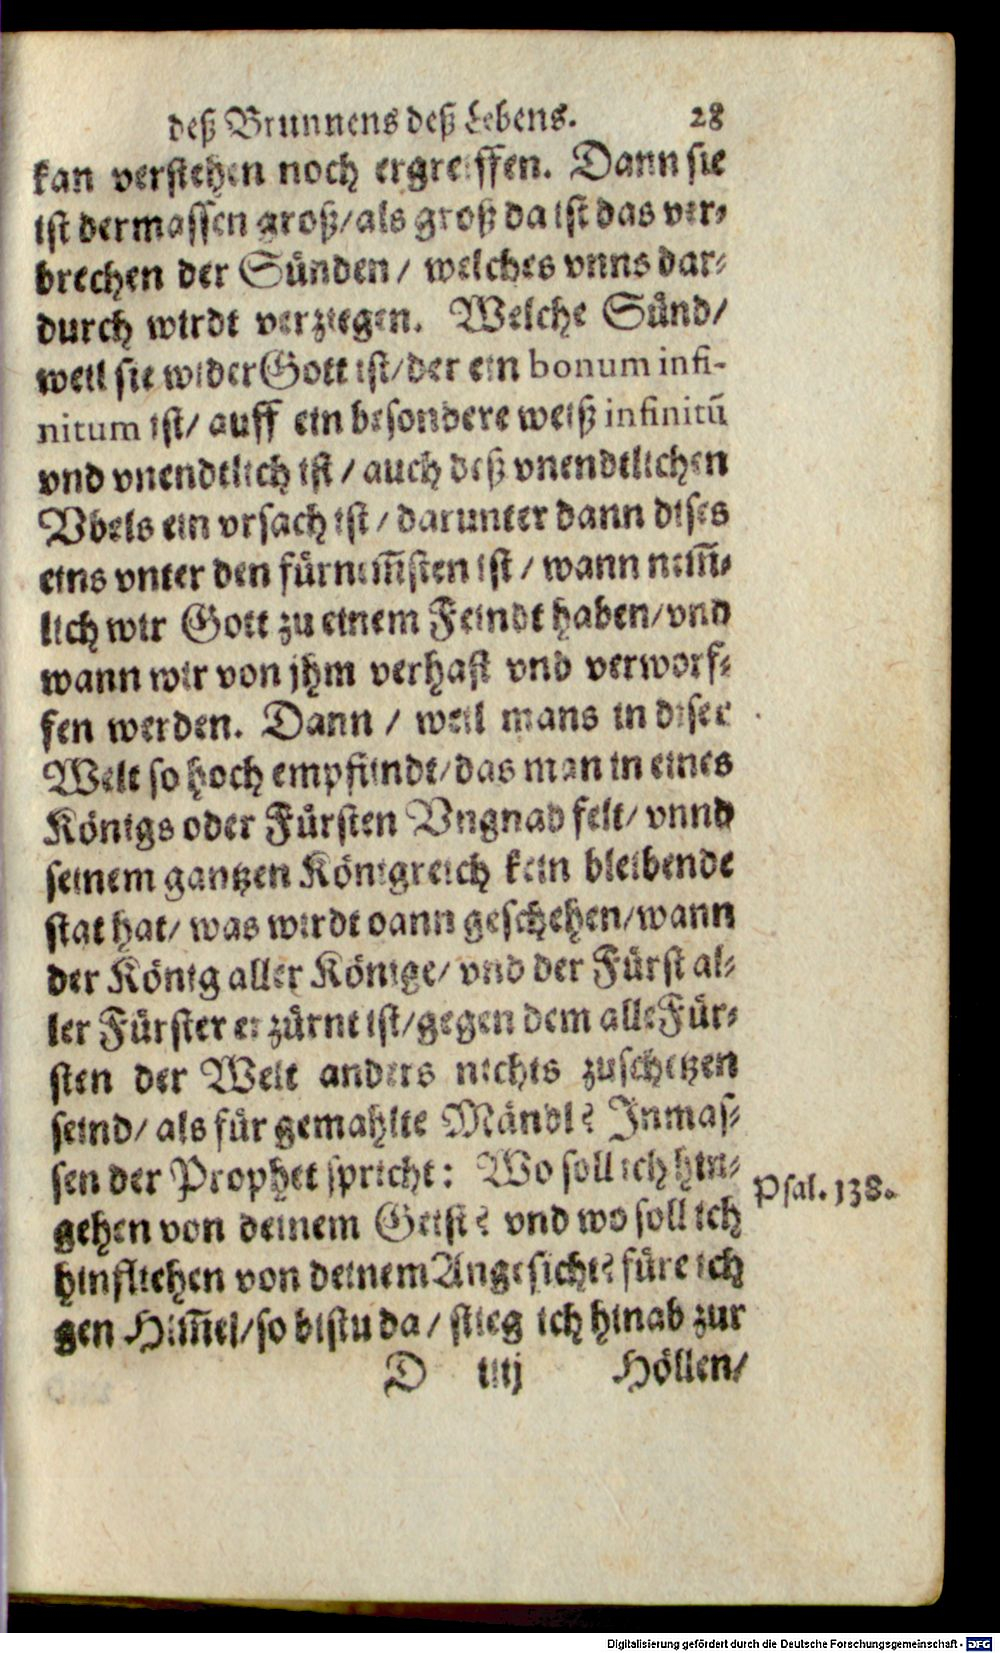 deß Brunnens deß Lebens. 28
kan verstehen noch ergreiffen. Dann sie
ist dermassen groß/als groß da ist das ver-
brechen der Sünden/ welches vnns dar-
durch wirdt verziegen. Welche Sünd/
weil sie wider Gott ist/der ein bonum infi-
nitum ist/ auff ein besondere weiß infinitū
vnd vnendtlich ist/ auch deß vnendtlichen
Vbels ein vrsach ist/ darunter dann dises
eins vnter den fürnem̄sten ist/ wann nem̄-
lich wir Gott zu einem Feindt haben/vnd
wann wir von jhm verhast vnd verworf-
fen werden. Dann/ weil mans in diser
Welt so hoch empfindt/das man in eines
Königs oder Fürsten Vngnad felt/ vnnd
seinem gantzen Königreich kein bleibende
stat hat/ was wirdt dann geschehen/wann
der König aller Könige/ vnd der Fürst al-
ler Fürster erzürnt ist/gegen dem alle Für-
sten der Welt anders nichts zuschetzen
seind/ als für gemahlte Mändl? Inmas-
sen der Prophet spricht: Wo soll ich hin-
gehen von deinem Geist? vnd wo soll ich
hinfliehen von deinem Angesicht? füre ich
gen Him̄el/so bistu da/ stieg ich hinab zur
Psal. 138.
D iiij Höllen/
Digitalisierung gefördert durch die Deutsche Forschungsgemeinschaft - DFG